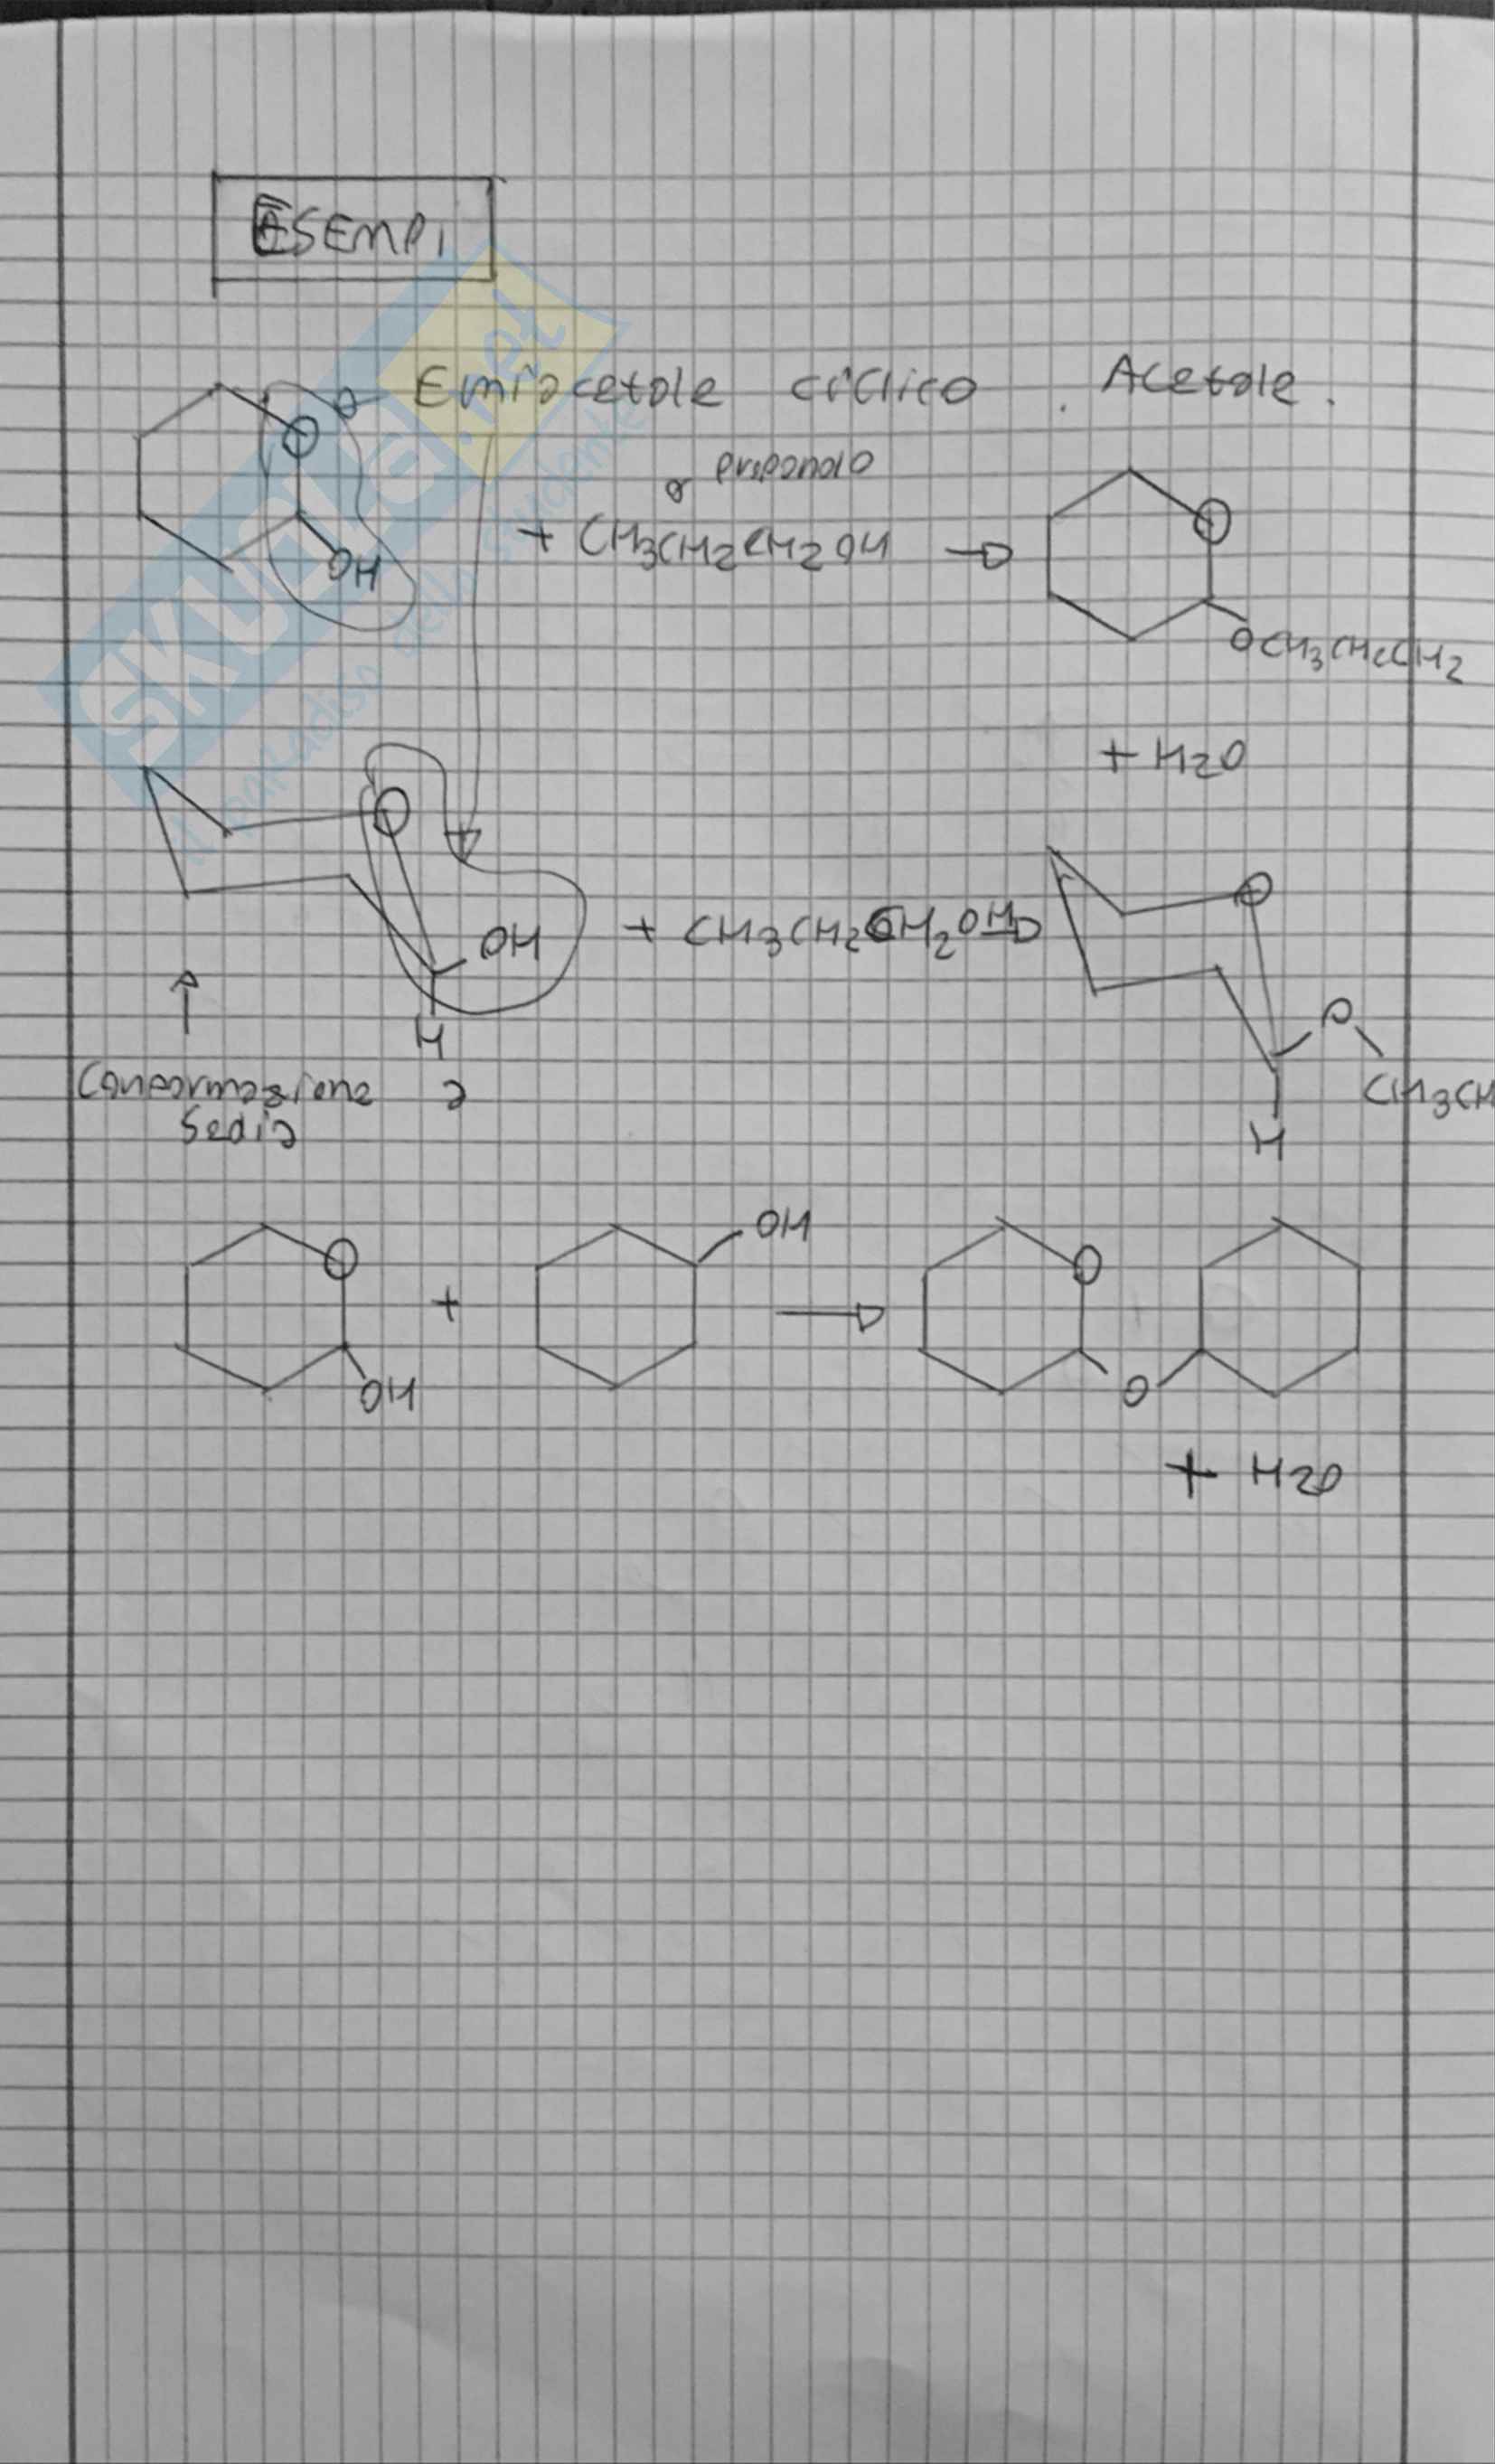 ESEMPI
Emiacetale ciclico . Acetale .
propanolo
O
OH
+ CH3CH2CH2OH
O
OCH3CH2CH2
+ H2O
O
OH
H
+ CH3CH2CH2OH
O
O
CH3CH
H
Conformazione a
Sedia
O
OH
+
OH
O
O
+ H2O
SKUOLA.net
il paradiso dello studente